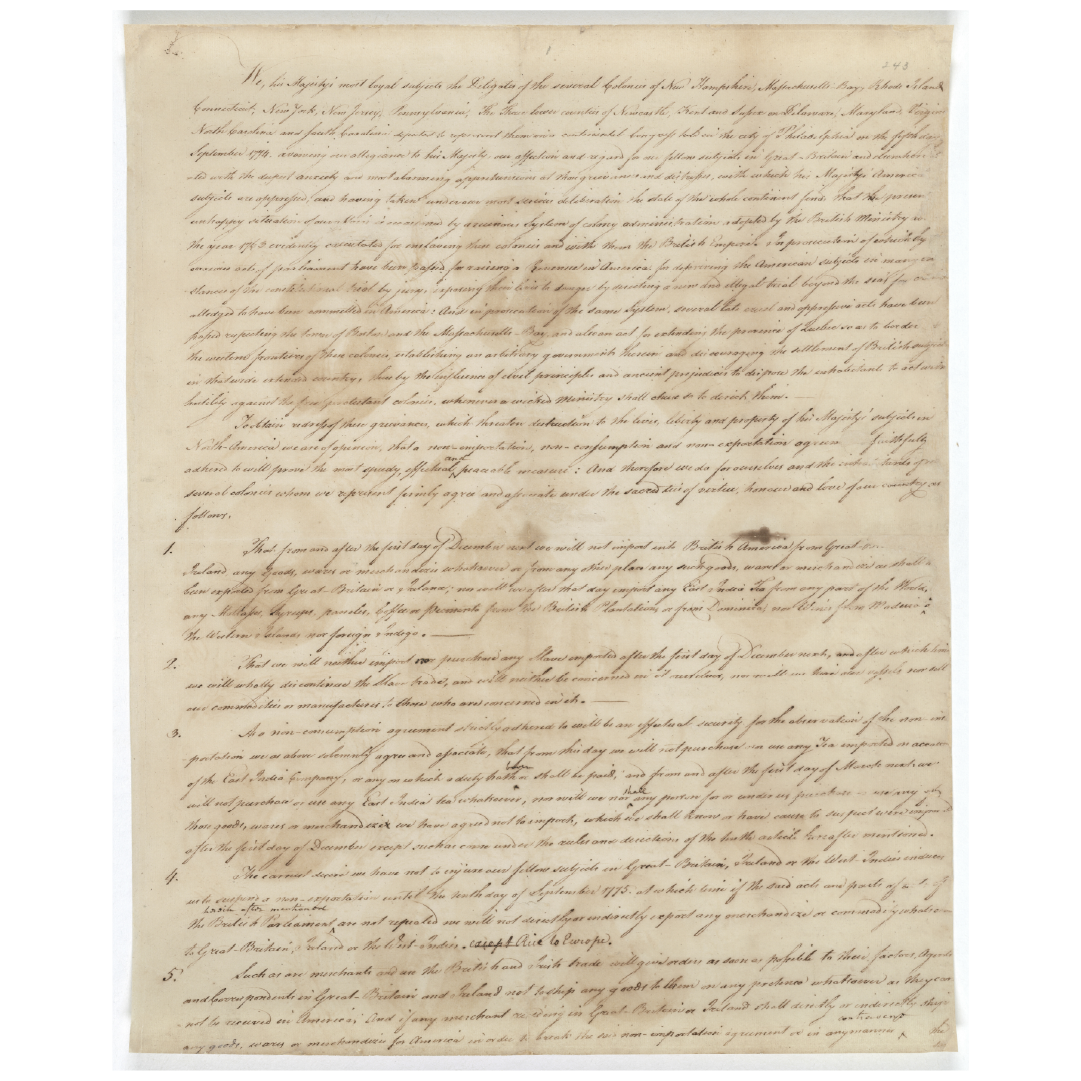 243
We, his Majesty's most loyal subjects the Delegates of the several Colonies of New Hampshire, Massachusetts-Bay, Rhode Island
Connecticut, New York, New Jersey, Pennsylvania, The Three lower counties of Newcastle, Kent and Sussex on Delaware, Maryland, Virginia
North-Carolina and South Carolina deputed to represent them in a continental Congress held in the city of Philadelphia on the fifth day
September 1774. avowing our allegiance to his Majesty, our affection and regard for our fellow subjects in Great-Britain and elsewhere
ted with the deepest anxiety and most alarming apprehensions at those grievances and distresses, with which his Majesty's American
subjects are oppressed, and having taken under our most serious deliberation the state of the whole continent find, that the present
unhappy situation of our affairs is occasioned by a ruinous System of colony administration adopted by the British Ministry
the year 1763 evidently calculated for inslaving these colonies and with them the British Empire. In prosecution of which
various acts of parliament have been passed for raising a Revenue in America, for depriving the American subjects in many in
stances of the constitutional trial by jury, exposing their lives to danger by directing a new and illegal trial beyond the seas for
alledged to have been committed in America: And in prosecution of the same System, several late cruel and oppressive acts have been
passed respecting the town of Boston and the Massachusetts-Bay, and also an act for extending the province of Quebec so as to border
the western frontiers of these colonies, establishing an arbitrary government therein and discouraging the settlement of British subjects
in that wide extended country, thus by the influence of civil principles and ancient prejudices to dispose the inhabitants to act with
hostility against the free protestant colonies, whenever a wicked Ministry shall chuse so to direct them.
To obtain redress of these grievances, which threaten destruction to the lives, liberty and property of his Majesty's subjects in
North-America we are of opinion, that a non-importation, non-consumption and non-exportation agree faithfully
adhered to will prove the most speedy, effectual and peaceable measure: And therefore we do for ourselves and the inhabitants of
several colonies whom we represent firmly agree and associate under the sacred ties of virtue, honour and love of our country as
follows.
1. That from and after the first day of December next we will not import into British America from Great
Ireland, any goods, wares or merchandize whatsoever or from any other place any such goods, wares or merchandizes as shall
been exported from Great-Britain or Ireland; nor will we after that day import any East India Tea from any part of the World,
any Molasses, Syrups, paneles, Coffee or piemento from the British Plantations or from Dominica, nor Wines from Madeira
the Western Islands nor foreign Indigo.
2. That we will neither import nor purchase any Slave imported after the first day of December next, and after which time
we will wholly discontinue the slave trade, and will neither be concerned in it ourselves, nor will we hire our vessels nor sell
our commodities or manufactures to those who are concerned in it.
3. As a non-consumption agreement strictly adhered to will be an effectual security for the observation of the non-im
portation we as above solemnly agree and associate, that from this day we will not purchase or use any Tea imported on account
of the East India Company, or any on which a duty hath been or shall be paid, and from and after the first day of March next we
will not purchase or use any East India tea whatsoever, nor will we nor shall any person for or under us purchase or use any of
those goods, wares or merchandize we have agreed not to import, which we shall know or have cause to suspect were imported
after the first day of December except such as come under the rules and directions of the tenth article hereafter mentioned.
4. The earnest desire we have not to injure our fellow subjects in Great-Britain, Ireland or the West-Indies induces
us to suspend a non-exportation until the tenth day of September 1775. at which time if the said acts and parts of
the British Parliament herein after mentioned are not repealed we will not directly or indirectly export any merchandize or commodity whatso
to Great-Britain, Ireland or the West-Indies. except Rice to Europe.
5. Such as are merchants and use the British and Irish trade will give orders as soon as possible to their factors, Agents
and Correspondents in Great-Britain and Ireland not to ship any goods to them on any pretence whatsoever as they can
not be received in America; And if any merchant residing in Great-Britain or Ireland shall directly or indirectly ship
any goods, wares or merchandizes for America in order to break the non-importation agreement or in any manner contravene the